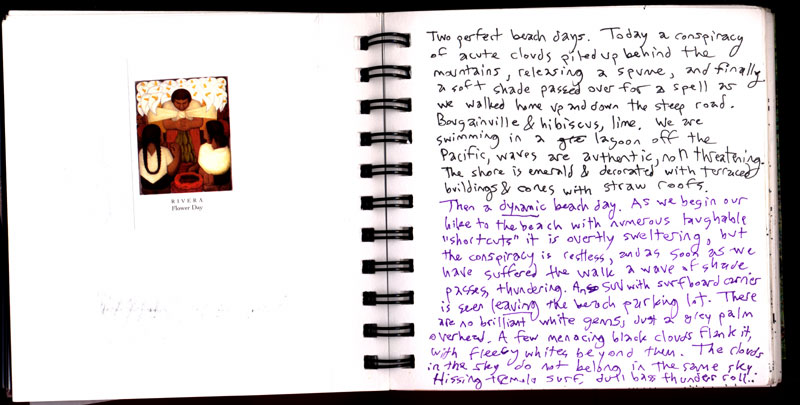 RIVERA
Flower Day
Two perfect beach days. Today a conspiracy
of acute clouds piled up behind the
mountains, releasing a spume, and finally
a soft shade passed over for a spell as
we walked home up and down the steep road.
Bougainville & hibiscus, lime. We are
swimming in a lagoon off the
Pacific, waves are authentic, non threatening.
The shore is emerald & decorated with terraced
buildings & cones with straw roofs.
Then a dynamic beach day. As we begin our
hike to the beach with numerous laughable
"shortcuts" it is overtly sweltering, but
the conspiracy is restless, and as soon as we
have suffered the walk a wave of shade
passes, thundering. An SUV with surfboard carrier
is seen leaving the beach parking lot. There
are no brilliant white gems, just a grey palm
overhead. A few menacing black clouds flank it,
with fleecy whites beyond them. The clouds
in the sky do not belong in the same sky.
Hissing tremolo surf, dull bass thunder roll...